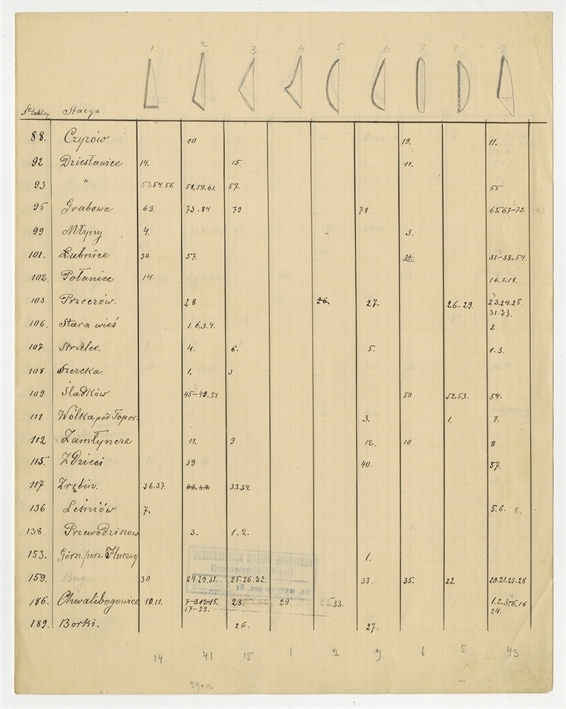 1 2 3 4 5 6 7 8 9
Stacya
88. Czyżów 10 19. 11.
92 Dziesławice 14. 15. 11.
93 " 53.54.56 58,59.61. 57. 55
95 Grabowa 63. 73.-84 79 78 65.67-72
99 Młyny 4. 3.
101. Łubnice 30. 57. 31-53.54.
102. Połaniec 14. 16.
103 Przeczów. 28 26. 27. 26-29. 23.24.25.
31.33.
106. Stara wieś 1.6.3.4. 2
107. Strzelce 4. 6. 5. 1.3.
108 Szczeka. 1. 3
109 Śladków 45-48.51 50 52.53. 54.
111 Wólka pod Topor. 3. 1. 7.
112 Zamłyncze 11. 9 12. 10 8
115. Zdzieci 39 40. 37.
117 Zrębin. 36.37. 33.34.
136 Leśniów 7. 5.6. 8.
138 Przewodziszow 3. 1.2.
153. 1.
159. 30 24.29.31. 25-26.32. 33. 35. 22. 20.21.23.28
186. Chwalibogowice 10.11. 7-9.12-15. 23. 29 25.33. 1.2.3.5.6.16
17-22. 24.
189. Borki. 26. 27.
14 41 15 1 2 9 6 5 43